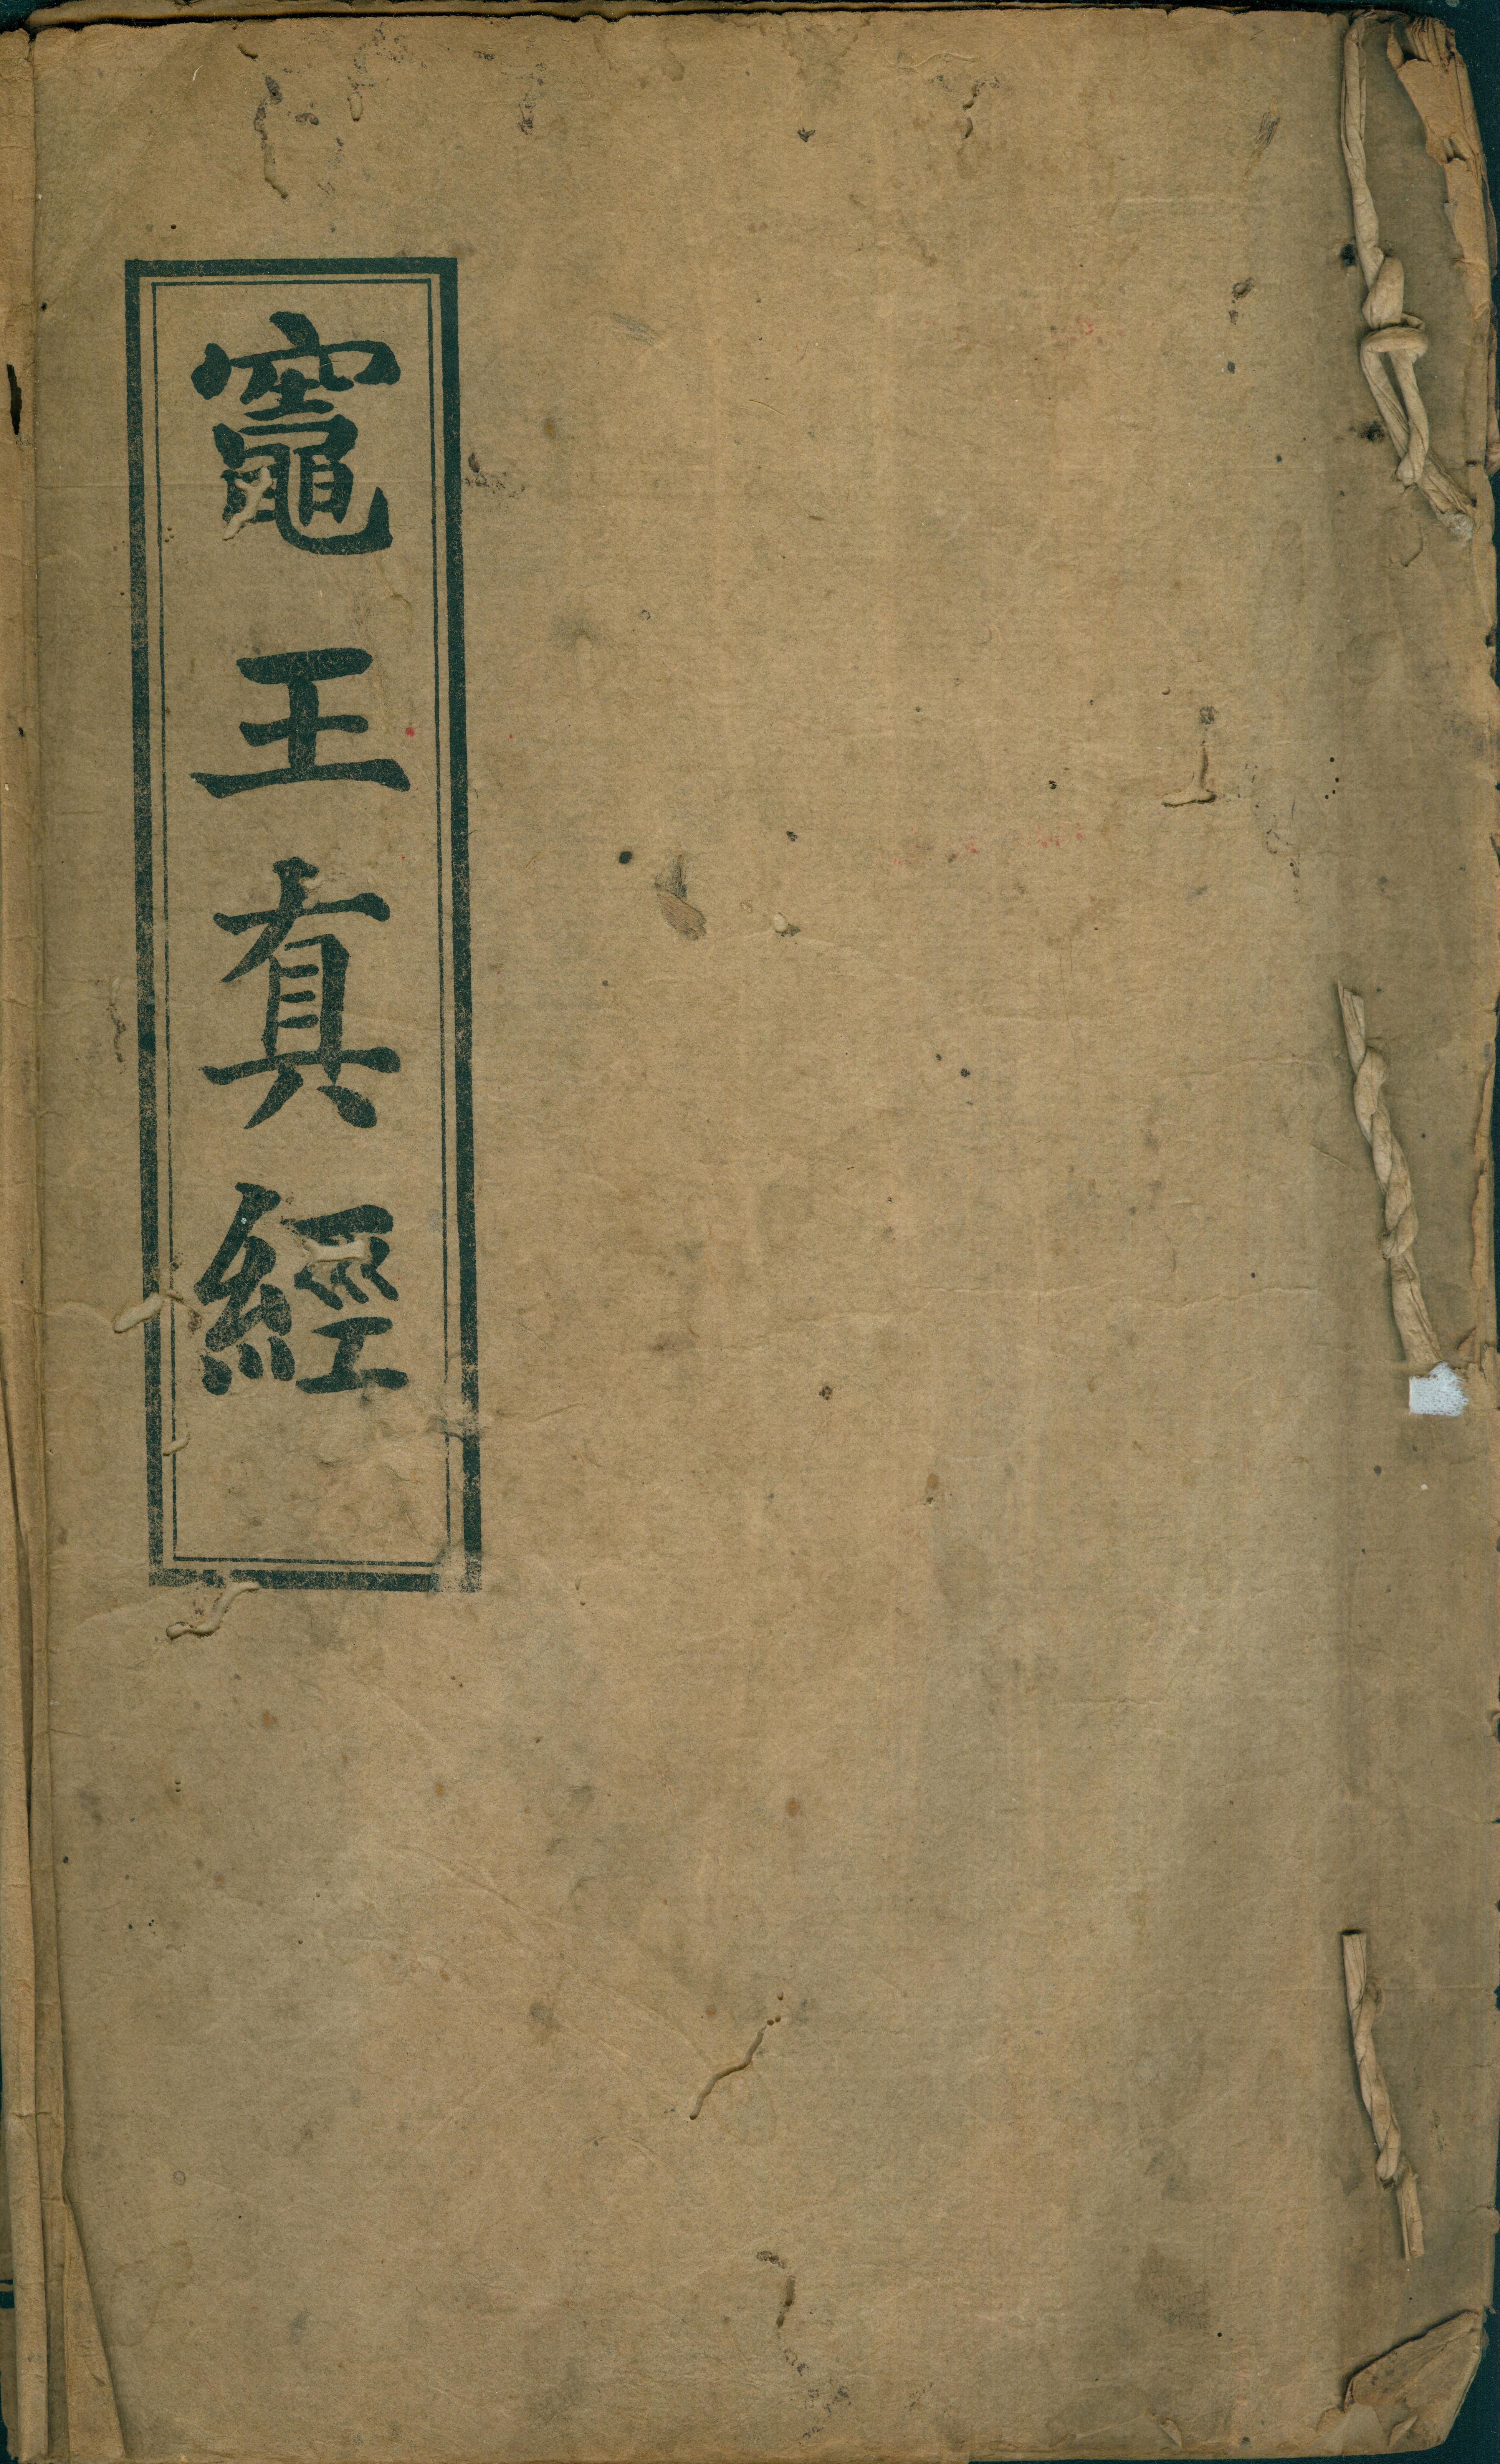 竈王真經